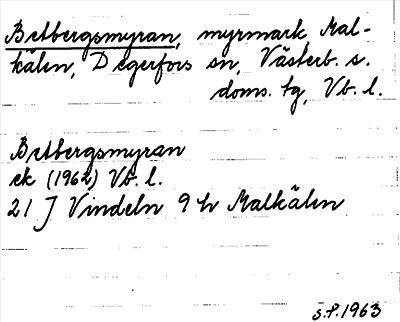 Betbergsmyran, myrmark Mal-
kälen, Degerfors sn, Västerb. s.
doms. tg, Vb. l.
Betbergsmyran
ek (1962) Vb. l.
21 J Vindeln 9 h Malkälen
S.P. 1963